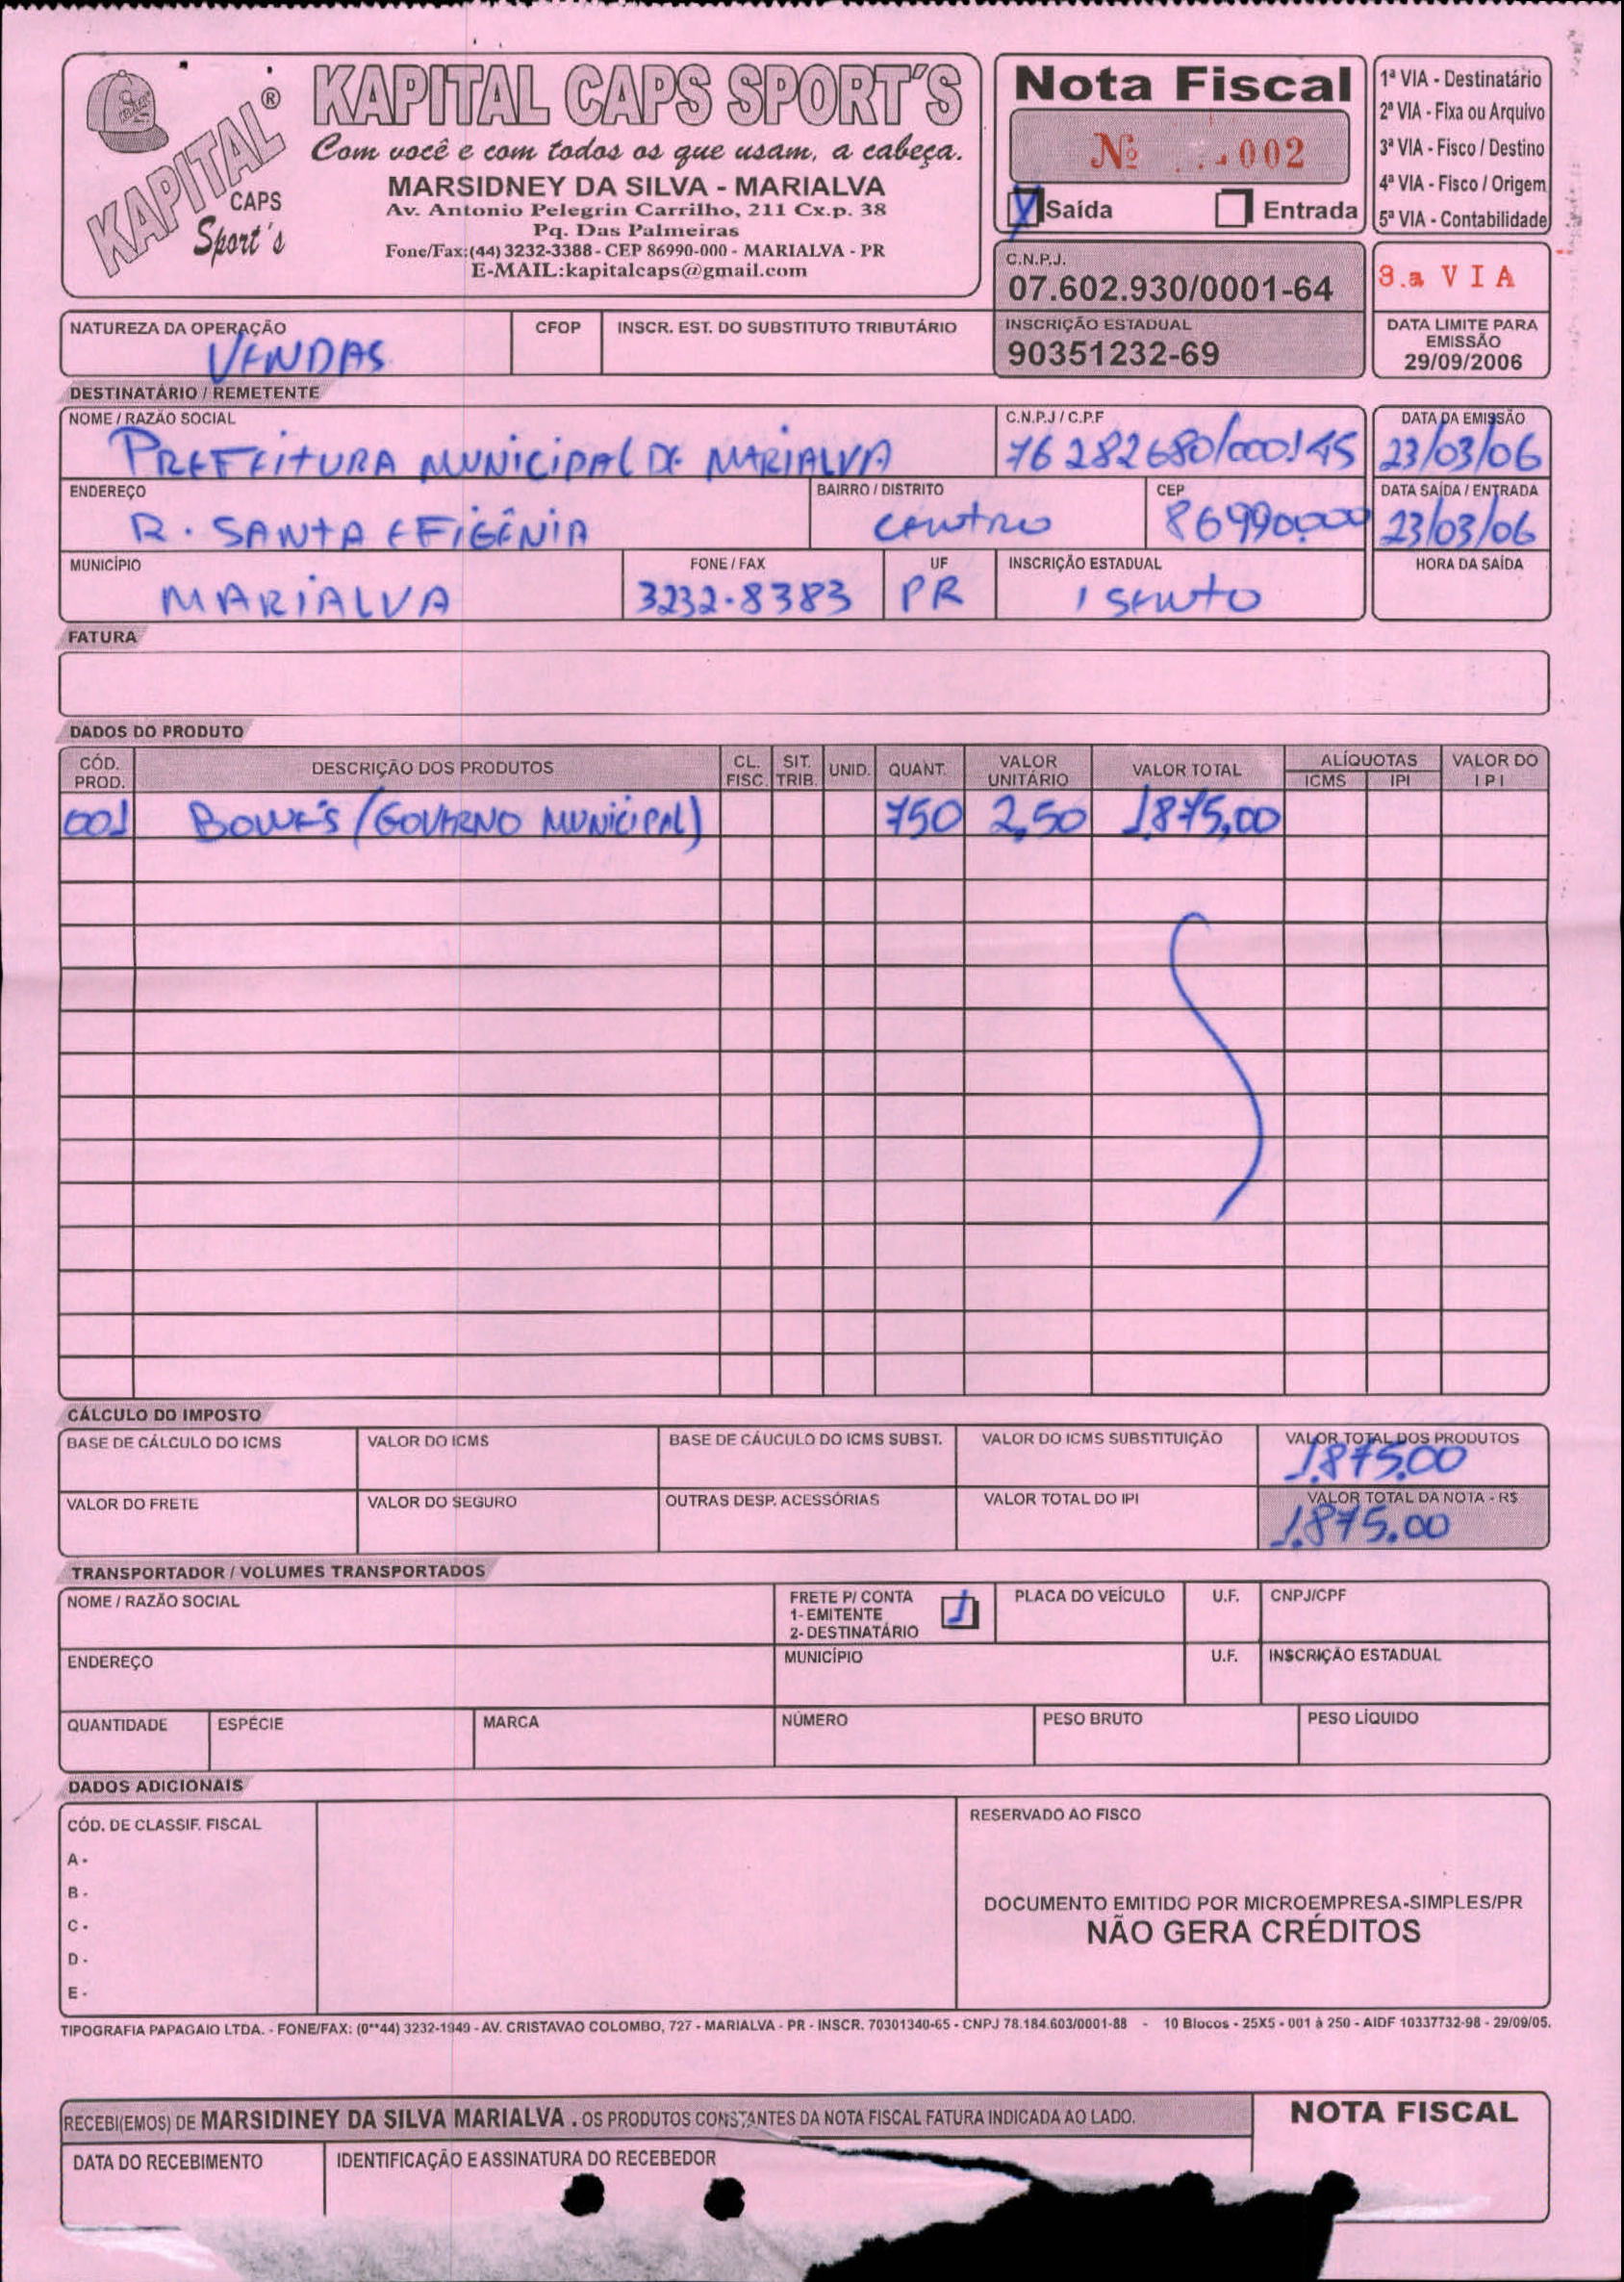 KAPITAL CAPS Sport's ®
KAPITAL CAPS SPORT'S
Com você e com todos os que usam, a cabeça.
MARSIDNEY DA SILVA - MARIALVA
Av. Antonio Pelegrin Carrilho, 211 Cx.p. 38
Pq. Das Palmeiras
Fone/Fax:(44) 3232-3388 - CEP 86990-000 - MARIALVA - PR
E-MAIL:kapitalcaps@gmail.com
Nota Fiscal
Nº 002
Saída Entrada
1ª VIA - Destinatário
2ª VIA - Fixa ou Arquivo
3ª VIA - Fisco / Destino
4ª VIA - Fisco / Origem
5ª VIA - Contabilidade
C.N.P.J.
07.602.930/0001-64
3.a VIA
NATUREZA DA OPERAÇÃO
VENDAS
CFOP
INSCR. EST. DO SUBSTITUTO TRIBUTÁRIO
INSCRIÇÃO ESTADUAL
90351232-69
DATA LIMITE PARA
EMISSÃO
29/09/2006
DESTINATÁRIO / REMETENTE
NOME / RAZÃO SOCIAL
PREFEITURA MUNICIPAL DE MARIALVA
C.N.P.J / C.P.F
76 282680/000145
DATA DA EMISSÃO
23/03/06
ENDEREÇO
R. SANTA EFIGÊNIA
BAIRRO / DISTRITO
CENTRO
CEP
86990000
DATA SAÍDA / ENTRADA
23/03/06
MUNICÍPIO
MARIALVA
FONE / FAX
3232-8383
UF
PR
INSCRIÇÃO ESTADUAL
ISENTO
HORA DA SAÍDA
FATURA
DADOS DO PRODUTO
CÓD. PROD. DESCRIÇÃO DOS PRODUTOS CL. FISC. SIT. TRIB. UNID. QUANT. VALOR UNITÁRIO VALOR TOTAL ALÍQUOTAS ICMS IPI VALOR DO IPI
001 BONÉS (GOVERNO MUNICIPAL) 750 2,50 1.875,00
CÁLCULO DO IMPOSTO
BASE DE CÁLCULO DO ICMS
VALOR DO ICMS
BASE DE CÁUCULO DO ICMS SUBST.
VALOR DO ICMS SUBSTITUIÇÃO
VALOR TOTAL DOS PRODUTOS
1.875.00
VALOR DO FRETE
VALOR DO SEGURO
OUTRAS DESP. ACESSÓRIAS
VALOR TOTAL DO IPI
VALOR TOTAL DA NOTA - R$
1.875.00
TRANSPORTADOR / VOLUMES TRANSPORTADOS
NOME / RAZÃO SOCIAL
FRETE P/ CONTA
1- EMITENTE
2- DESTINATÁRIO
1
PLACA DO VEÍCULO
U.F.
CNPJ/CPF
ENDEREÇO
MUNICÍPIO
U.F.
INSCRIÇÃO ESTADUAL
QUANTIDADE
ESPÉCIE
MARCA
NÚMERO
PESO BRUTO
PESO LÍQUIDO
DADOS ADICIONAIS
CÓD. DE CLASSIF. FISCAL
A -
B -
C -
D -
E -
RESERVADO AO FISCO
DOCUMENTO EMITIDO POR MICROEMPRESA-SIMPLES/PR
NÃO GERA CRÉDITOS
TIPOGRAFIA PAPAGAIO LTDA. - FONE/FAX: (0**44) 3232-1949 - AV. CRISTAVAO COLOMBO, 727 - MARIALVA - PR - INSCR. 70301340-65 - CNPJ 78.184.603/0001-88 - 10 Blocos - 25X5 - 001 à 250 - AIDF 10337732-98 - 29/09/05.
RECEBI(EMOS) DE MARSIDINEY DA SILVA MARIALVA . OS PRODUTOS CONSTANTES DA NOTA FISCAL FATURA INDICADA AO LADO.
NOTA FISCAL
DATA DO RECEBIMENTO
IDENTIFICAÇÃO E ASSINATURA DO RECEBEDOR